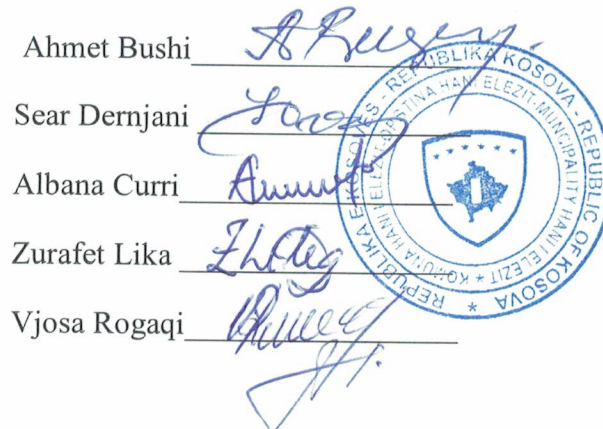 Ahmet Bushi
Sear Dernjani
Albana Curri
Zurafet Lika
Vjosa Rogaqi
REPUBLIKA E KOSOVËS - REPUBLIKA KOSOVA - REPUBLIC OF KOSOVA *
KOMUNA HANI I ELEZIT - OPŠTINA HANI ELEZIT - MUNCIPALITY HANI I ELEZIT *